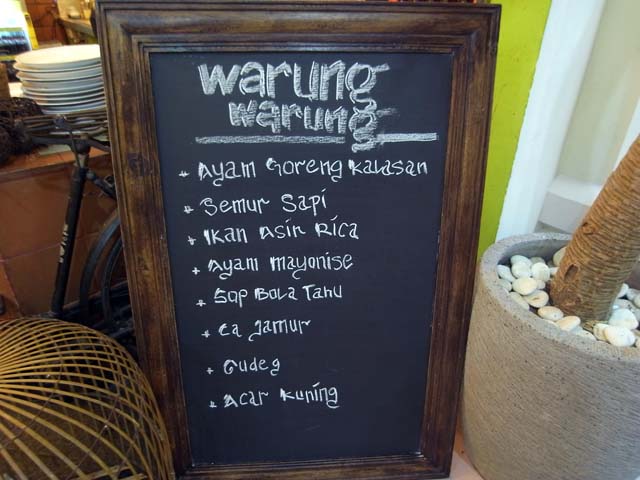 warung
warung
+ Ayam Goreng Kalasan
+ Semur Sapi
+ Ikan Asin Rica
+ Ayam Mayonise
+ Sop Bola Tahu
+ Ca Jamur
+ Gudeg
+ Acar Kuning